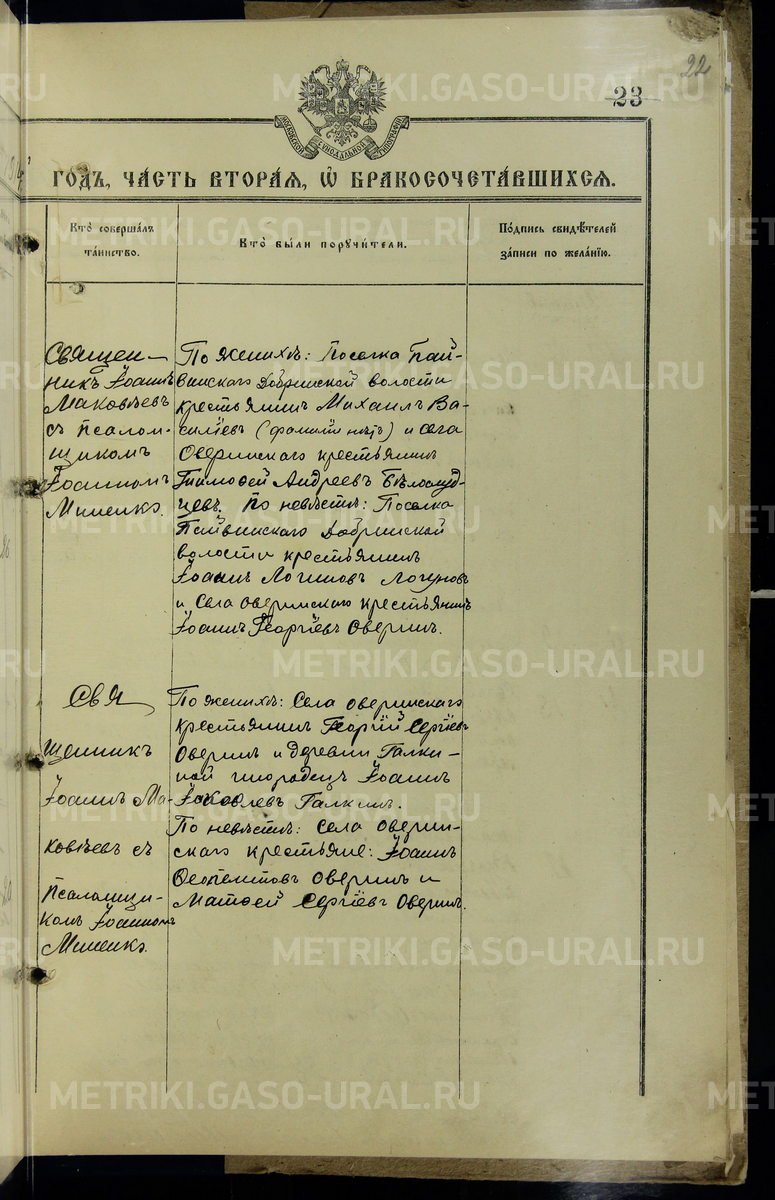 22
23
МОСКОВСКОЙ СѴНОДАЛЬНОЙ ТИПОГРАФІИ
ГОДЪ, ЧА́СТЬ ВТОРА́Я, Ѡ҆ БРАКОСОЧЕТА́ВШИХСЯ.
Кто̀ совершáлъ
тáинство.
Кто̀ бы́ли поручи́тели.
По́дпись свидѣ́телей
зáписи по желáнїю.
Священ-
никъ Іоаннъ
Маковѣевъ
съ псалом-
щикомъ
Іоанномъ
Миненко.
По женихѣ: Поселка Пай-
винскаго Добринской волости
крестьянинъ Михаилъ Ва-
силіевъ (фамиліи нѣтъ) и села
Оверинскаго крестьянинъ
Тимофей Андреевъ
По невѣстѣ: Поселка
Пайвинскаго Добринской
волости крестьянинъ
Іоаннъ Логиновъ Логуновъ
и села Оверинскаго крестьянинъ
Іоаннъ Георгіевъ Оверинъ.
Свя
щенникъ
Іоаннъ Ма-
ковѣевъ съ
псаломщи-
комъ Іоанномъ
Миненко.
По женихѣ: Села Оверинскаго
крестьянинъ Георгій Сергіевъ
Оверинъ и деревни Галки-
ной инородецъ Іоаннъ
Іаковлевъ Галкинъ.
По невѣстѣ: Села Оверин-
скаго крестьяне: Іоаннъ
Феопентовъ Оверинъ и
Матфей Сергіевъ Оверинъ.
METRIKI.GASO-URAL.RU